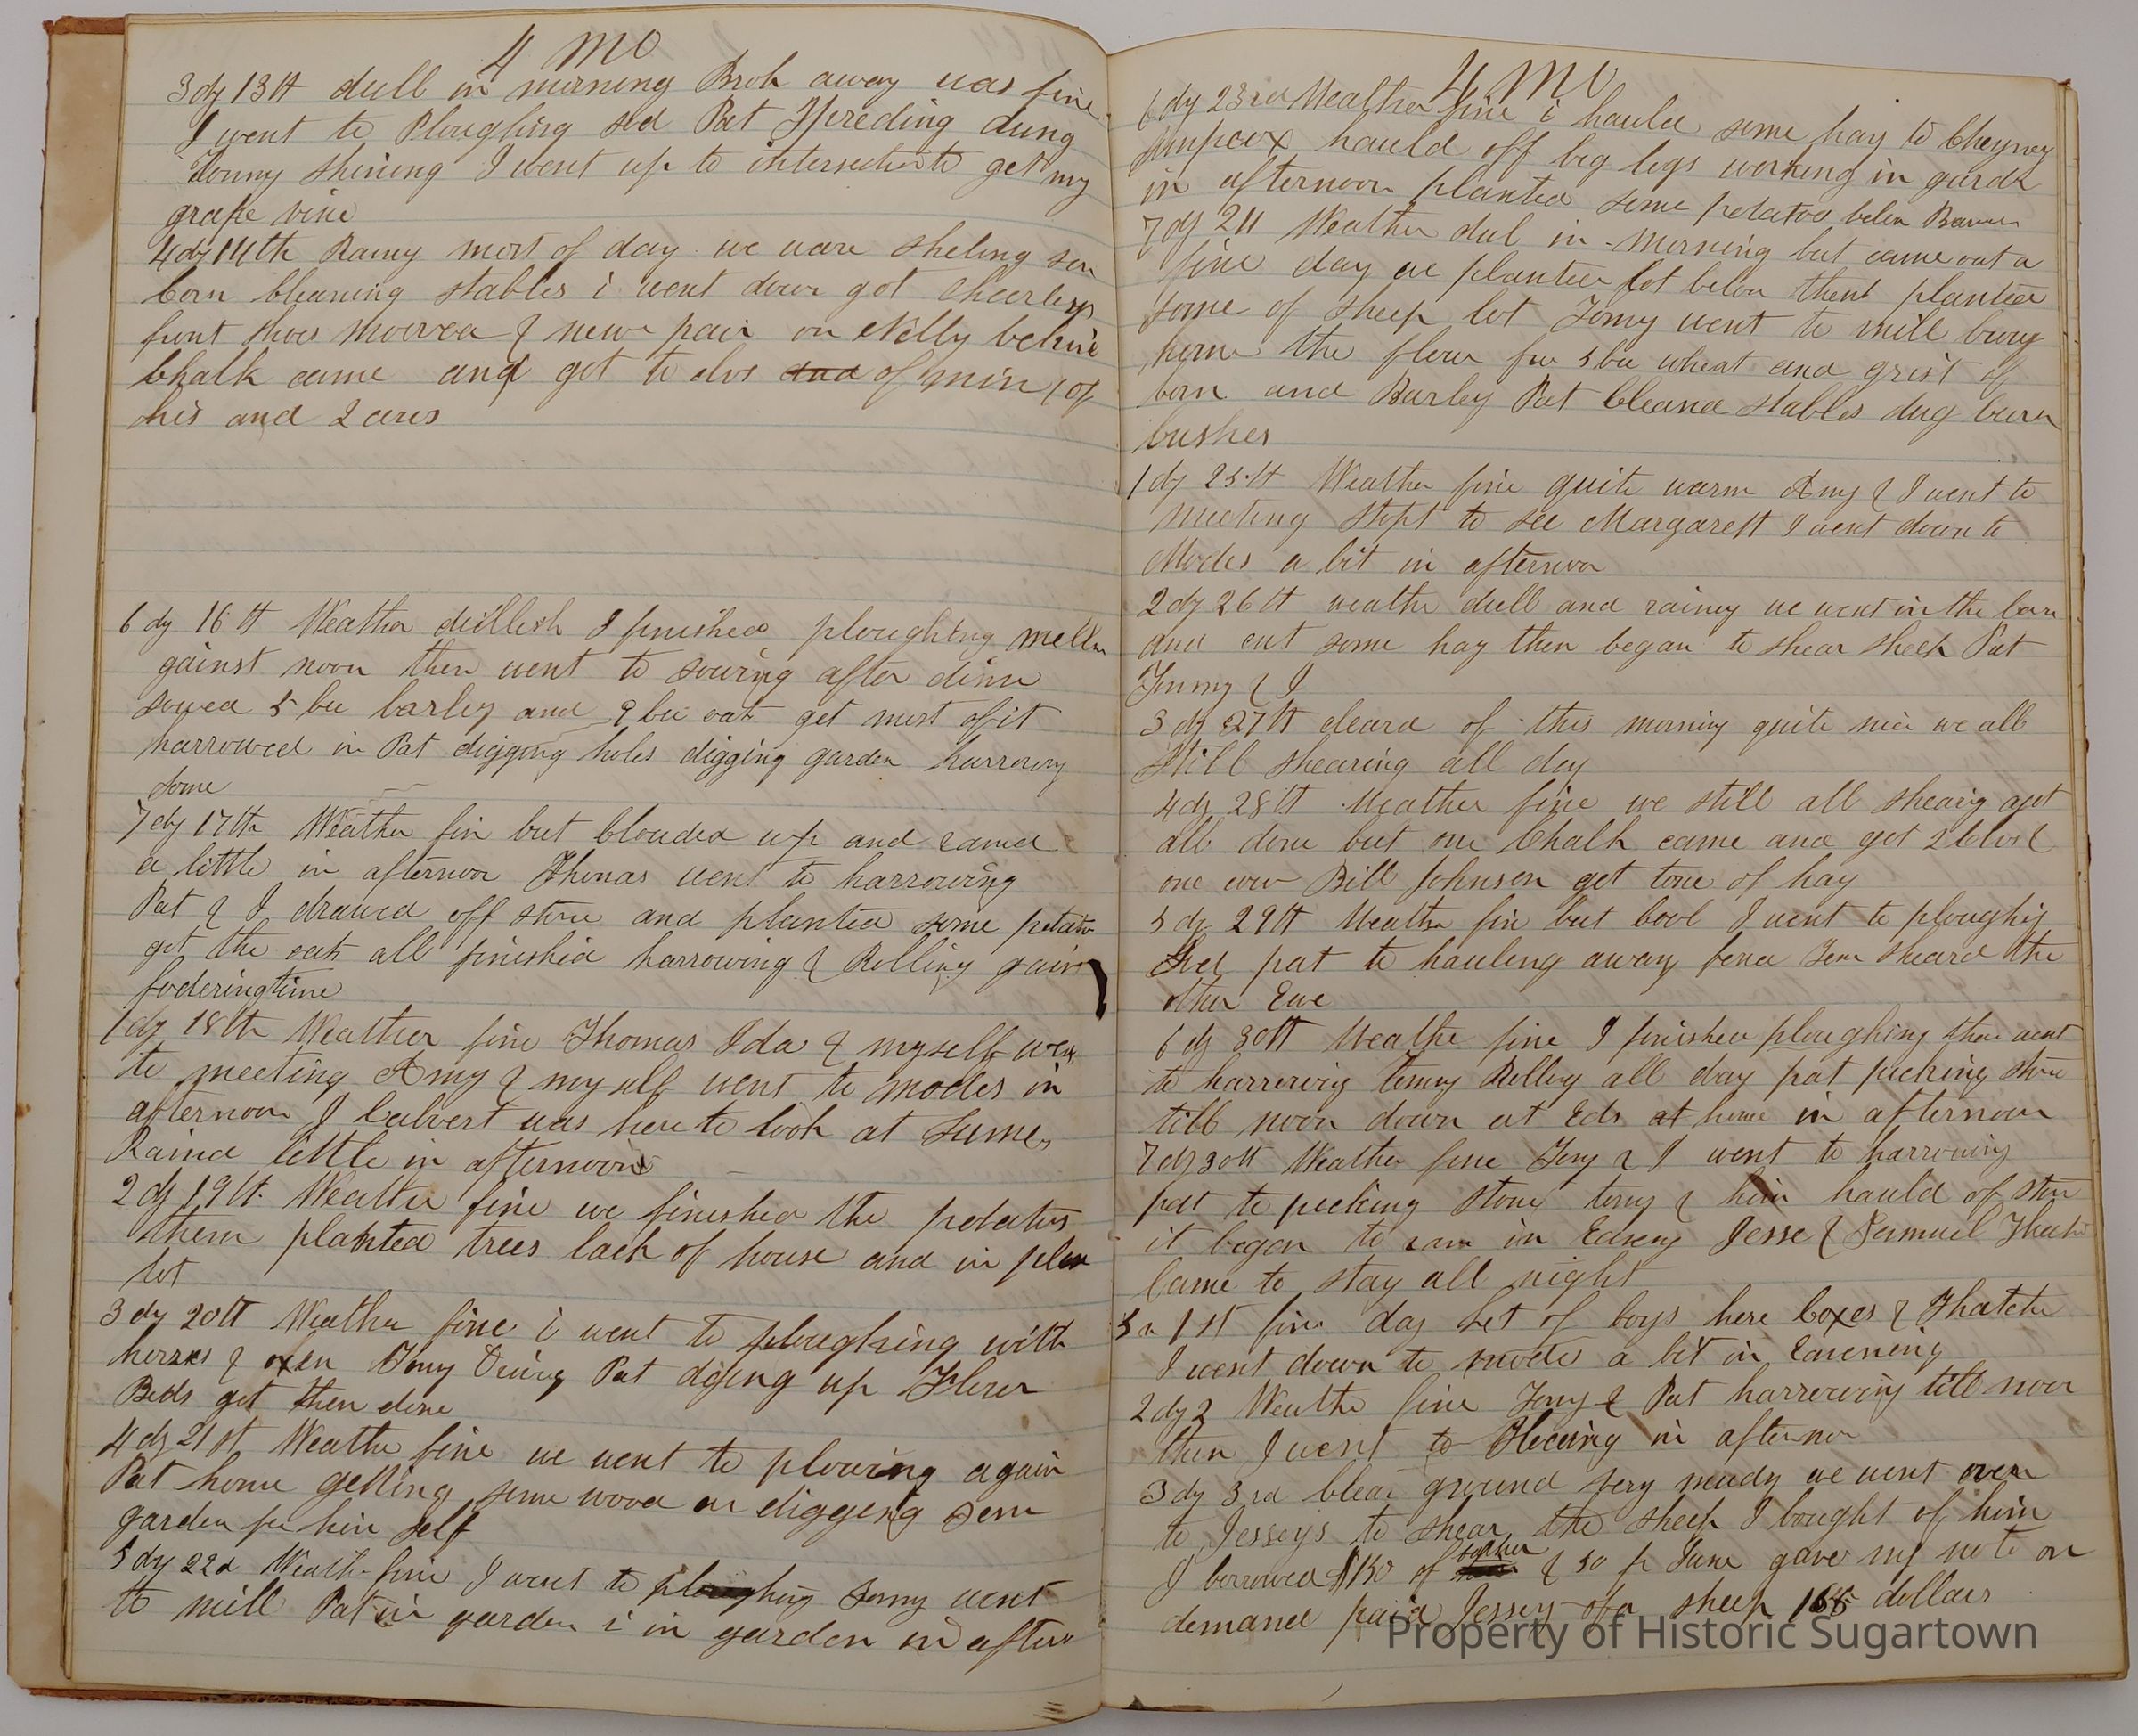 4 mo
3 dy 13th dull in morning Brok away was fine
I went to Ploughing sod Pat Spreding dung
Tommy I went up to to get my
grape vine
4 dy 14th Rainy most of day we ware sheling som
Corn Cleaning stables i went down got
front shoes mooved & new pair on Nelly behind
Chalk came and got of min 1 of
his and 2
6 dy 16th Weather dullish I finished ploughing
gainst noon then went to sowing after dinn
sowed 5 bu barley and 9 bu oats get most of it
harrowed in Pat digging holes digging garden harrowing
some
7 dy 17th Weather fin but Clouded up and raned
a little in afternoon Thomas went to harrowing
Pat & I drawed off stone and planted some potato
got the oats all finished harrowing & Rolling gains
foderingtime
1 dy 18th Weather fine Thomas Ida & myself went
to meeting Amy & myself went to modes in
afternoon J Calvert was here to look at
Raind little in afternoon
2 dy 19th Weather fine we finished the potatos
them planted trees back of house and in
lot
3 dy 20th Weather fine i went to ploughing with
horses & oxen Tomy Pat diging up Flower
Beds got them done
4 dy 21st Weather fine we went to plowing again
Pat home getting some wood digging som
garden for him self
5 dy 22d Weath fine I went to ploughing Tomy went
to mill Pat in garden i in garden in after
4 mo
6 dy 23rd Weather fine i hauld some hay to Cheyney
hauld off big logs working in gard
in afternoon planted some potatoo
7 dy 24 Weather dul in morning but came out a
fine day we planted lot below thent planted
some of sheep lot Tomy went to mill
home the flour for 5 bu wheat and grist of
Corn and Barley Pat Cleand stables dug
bushes
1 dy 25th Weather fine quite warm Amy & I went to
meeting stopt to see Margarett I went down to
Modes a bit in afternoon
2 dy 26th weathe dull and rainey we went in the barn
and cut some hay then began to shear sheep Pat
Tommy & I
3 dy 27th cleard of this morning quite nice we all
Still shearing all day
4 dy 28th Weather fine we still all shearig got
all done but one Chalk came and got 2
one cow Bill Johnson get tone of hay
5 dy 29th Weathe fin but Cool I went to ploughig
pat to hauling away Tom sheard the
other Ewe
6 dy 30th Weathe fine I finished ploughing then went
to harrowing tomy Rolling all day pat picking stone
till noon down at Eds at home in afternoon
7 dy 30th Weather fine Tomy & I went to harrowing
pat to picking stone tomy & him hauld of ston
it began to rain in Jesse & Samuel
Came to stay all night
1st fine day Set of boys here & Thatche
I went down to mode a bit in Eavening
2 dy 2 Weathe fine Tomy & Pat harrowing till noon
then I went to in afternoon
3 dy 3rd Clear ground very muddy we went over
to Jesseys to shear the sheep I bought of him
I borrowed $150 of & 50 gave my note on
demand paid Jessey sheep dollars
Property of Historic Sugartown